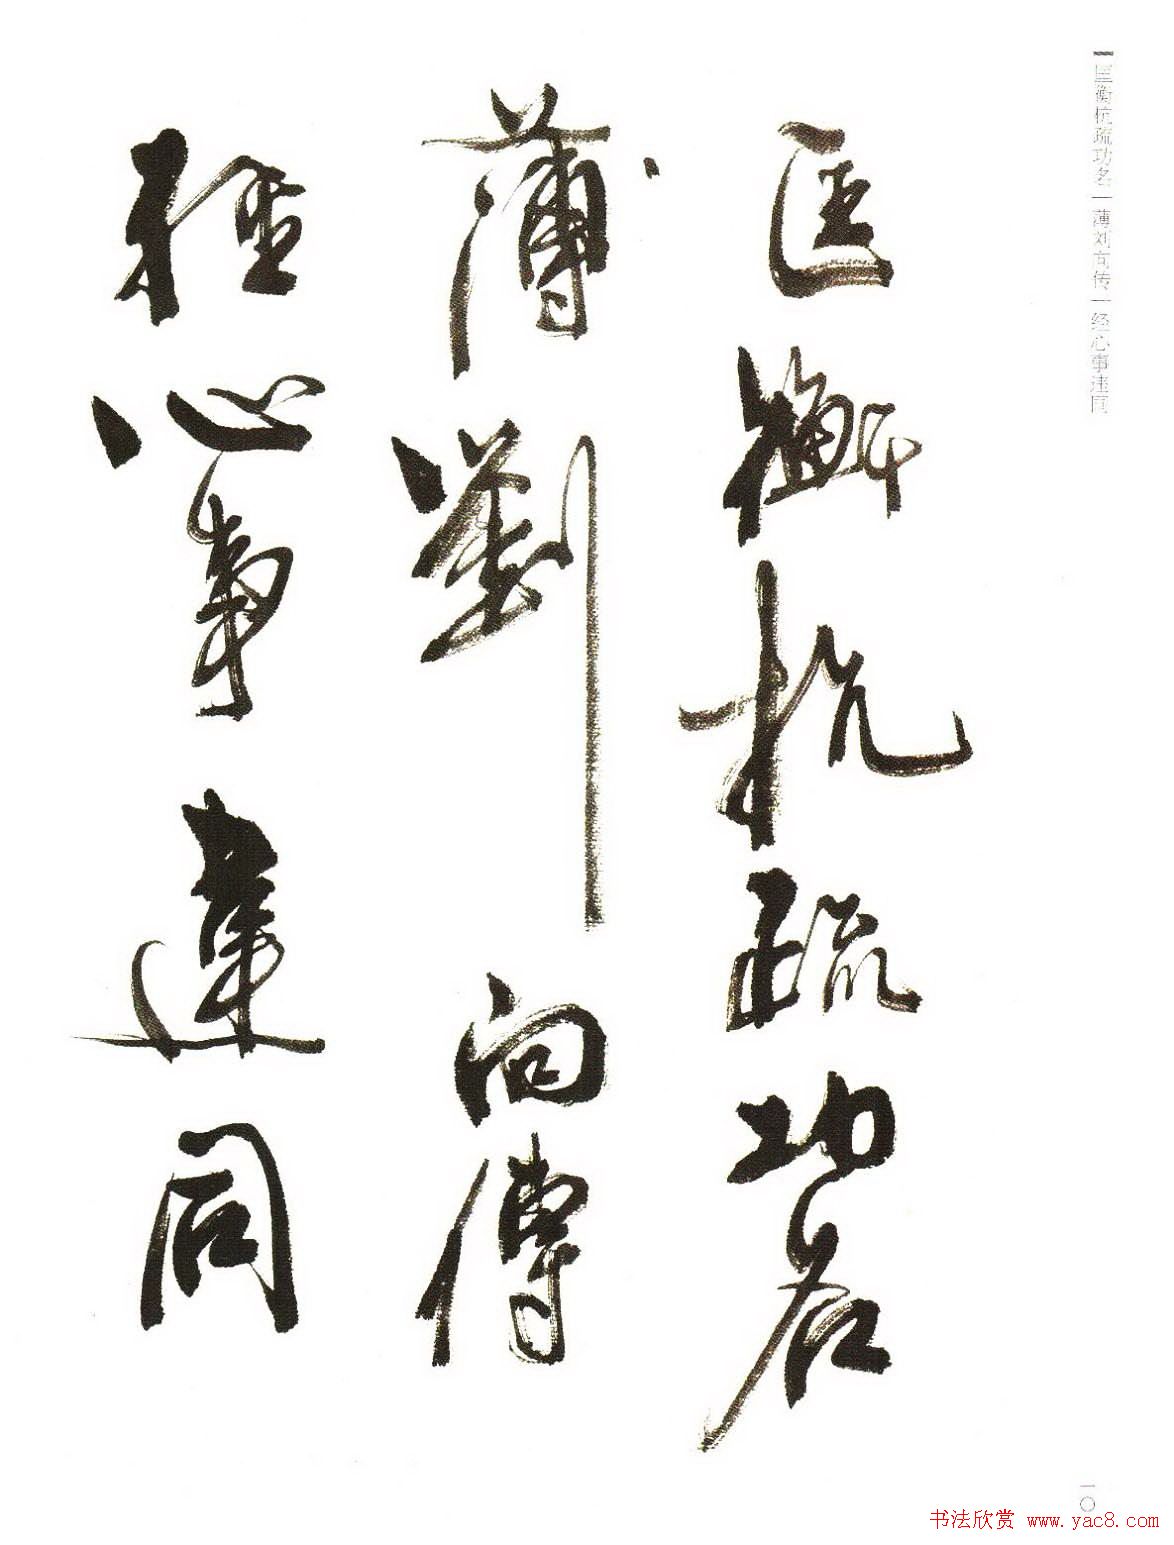 匡衡杭疏功名｜薄刘向传｜经心事违同
匡衡杭疏功名
薄劉向傳
經心事違同
一〇
书法欣赏 www.yac8.com